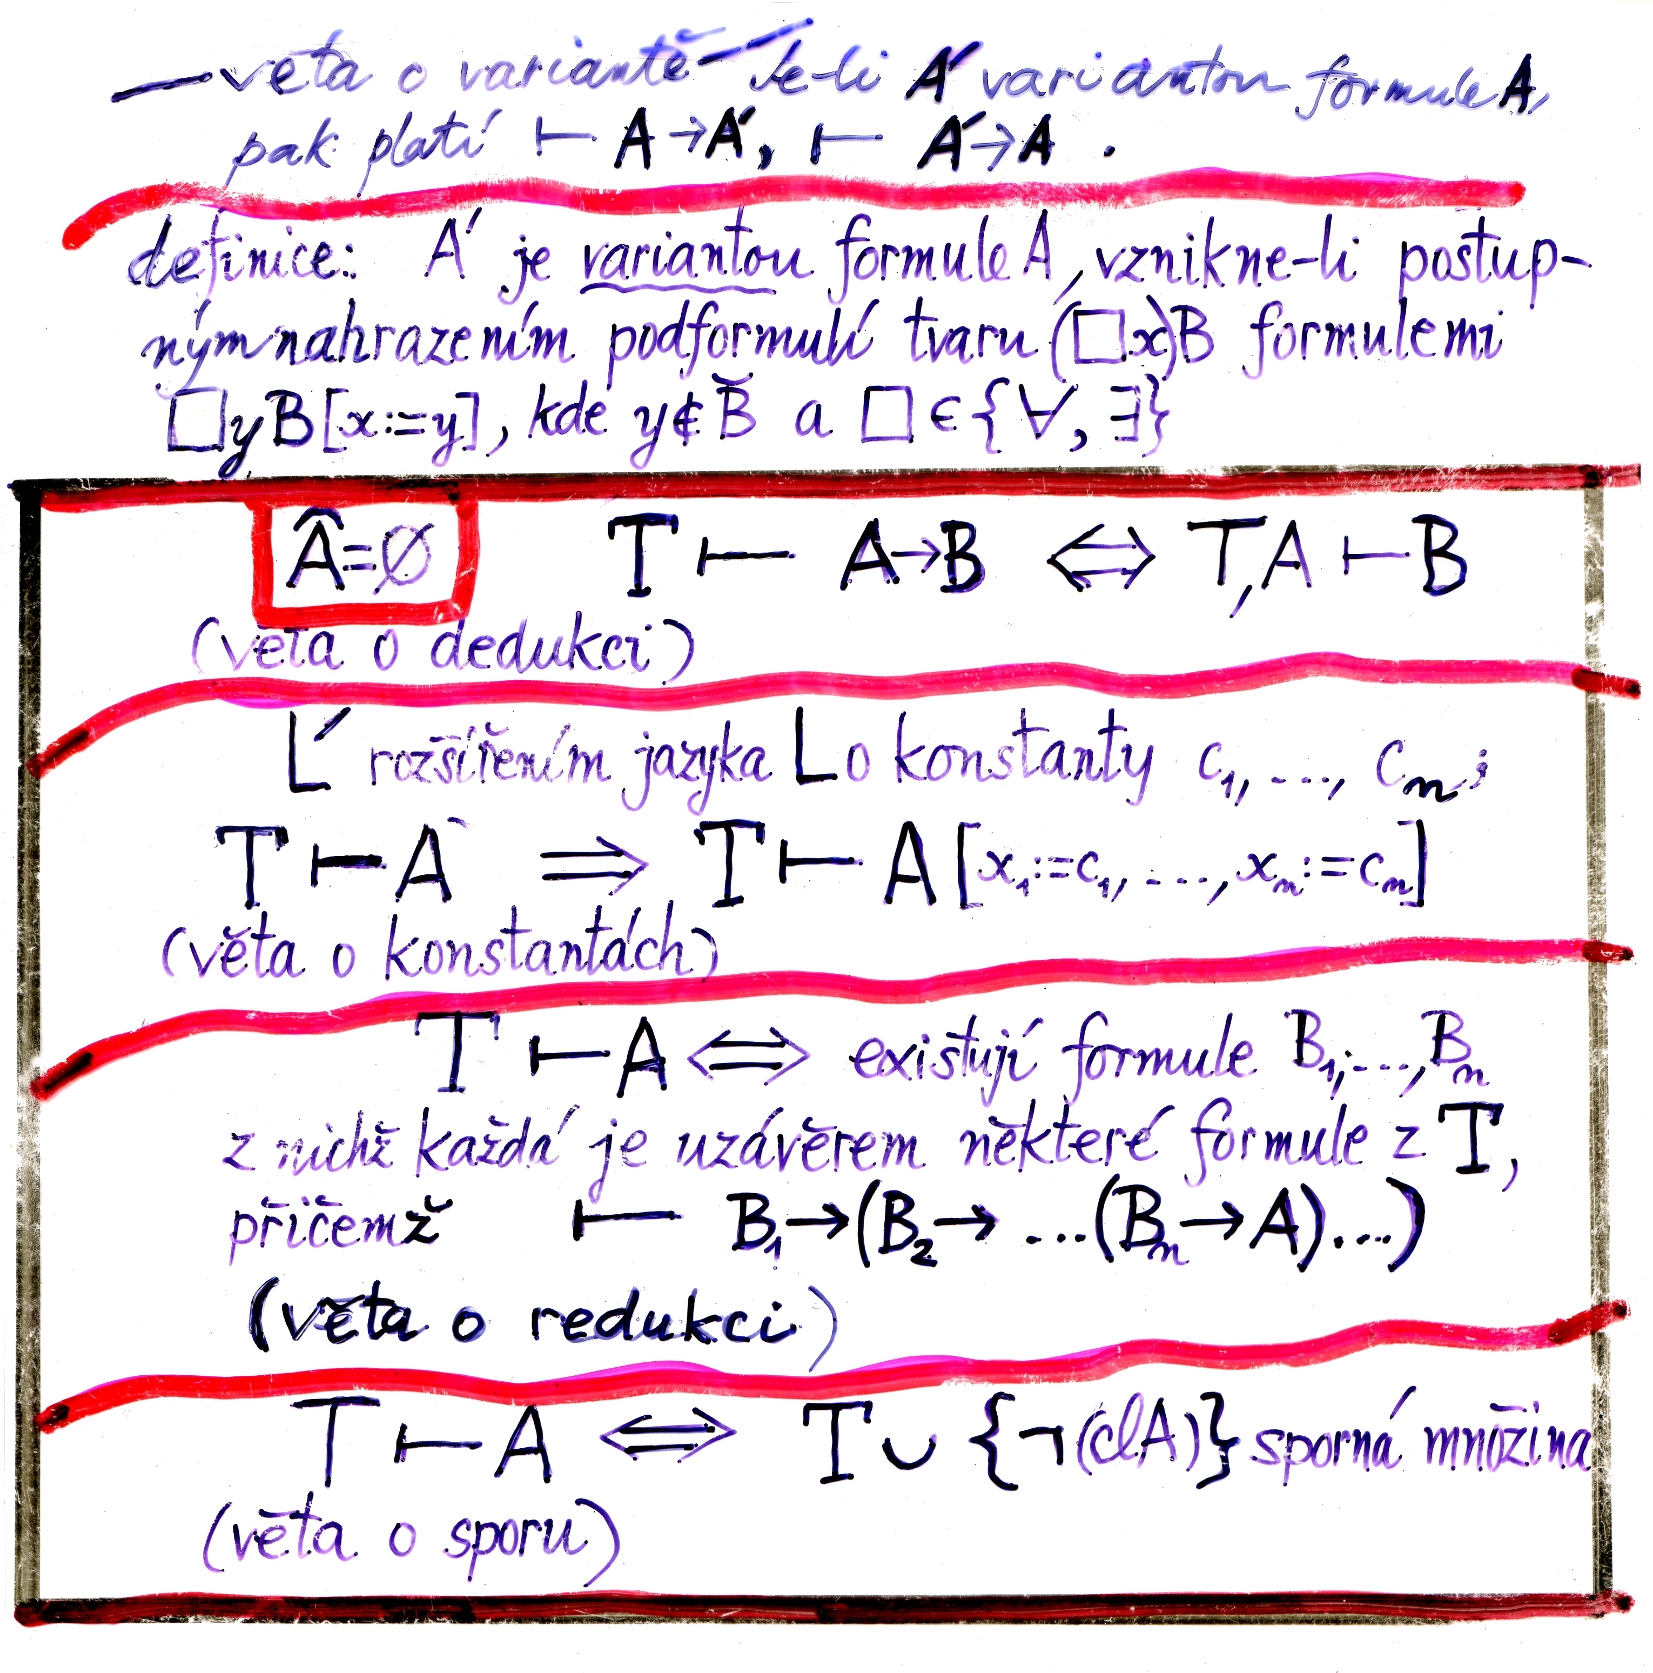 — věta o variantě – Je-li A' variantou formule A,
pak platí ⊢ A→A', ⊢ A'→A .
definice: A' je variantou formule A, vznikne-li postup-
ným nahrazením podformulí tvaru (□x)B formulemi
□yB[x:=y], kde y∉B̌ a □∈{∀,∃}
Â=∅ T ⊢ A→B ⇔ T,A ⊢ B
(věta o dedukci)
L' rozšířením jazyka L o konstanty c₁, ..., cₙ;
T ⊢ A ⇒ T ⊢ A[x₁:=c₁, ..., xₙ:=cₙ]
(věta o konstantách)
T ⊢ A ⇔ existují formule B₁, ..., Bₙ
z nichž každá je uzávěrem některé formule z T,
přičemž ⊢ B₁→(B₂→ ...(Bₙ→A)...)
(věta o redukci)
T ⊢ A ⇔ T ∪ {¬(clA)} sporná množina
(věta o sporu)